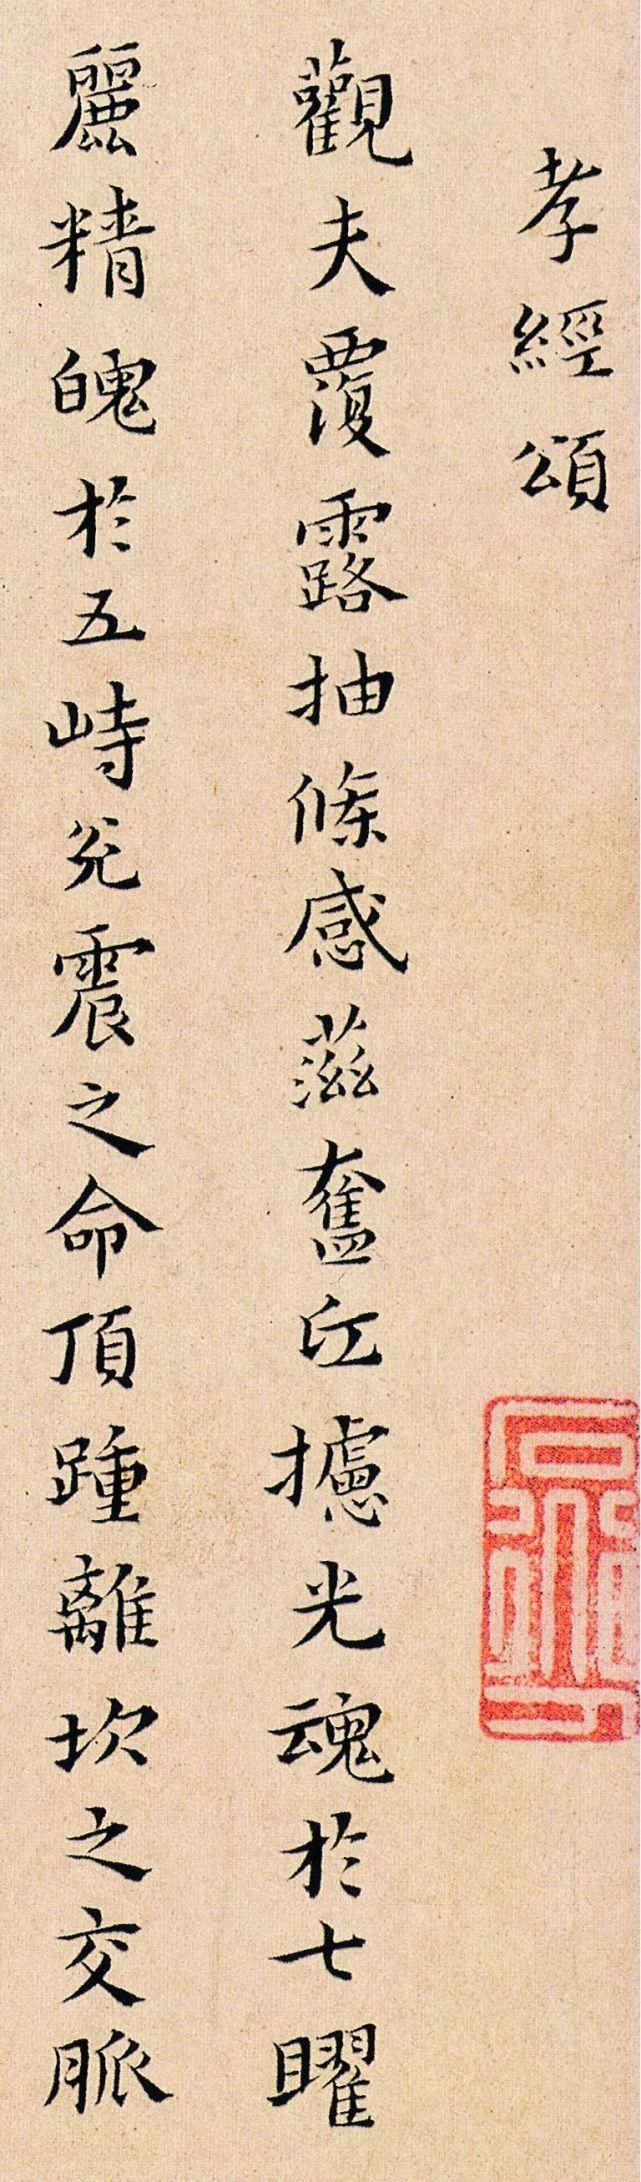 孝經頌
觀夫覆露抽條感蒎奮丘攄光魂於七曜
麗精魄於五峙兊震之命頂踵離坎之交脈